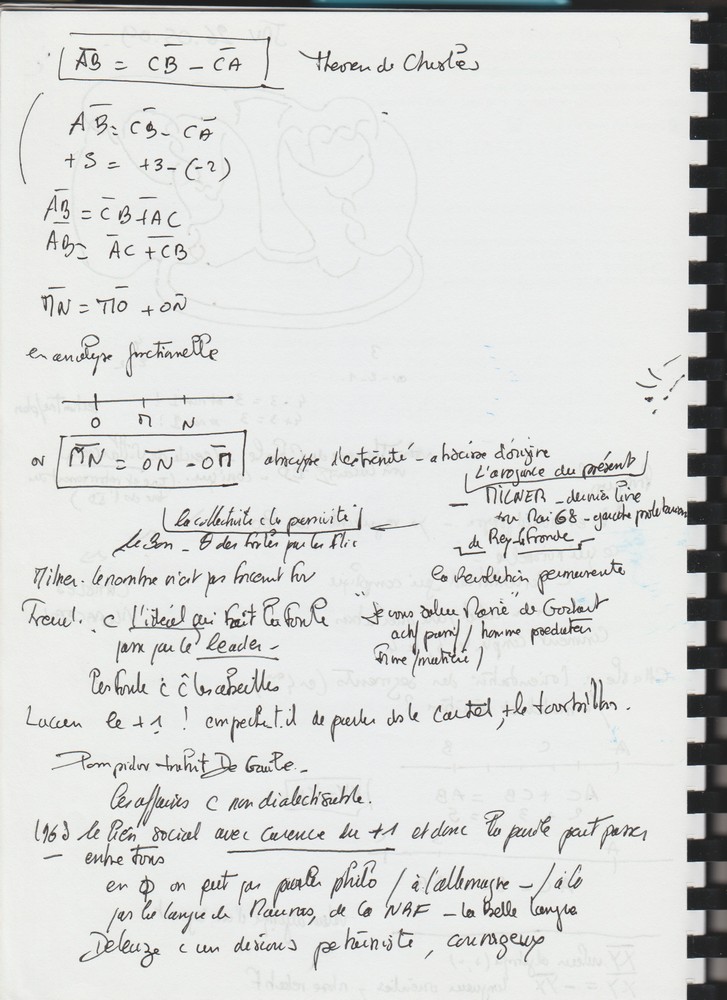 AB = CB - CA
AB = CB - CA
+5 = +3 - (-2)
AB = CB + AC
AB = AC + CB
MN = MO + ON
en analyse fonctionnelle
O M N
ou MN = ON - OM abscisse d'extrémité - abscisse d'origine
L'arrogance du présent
MILNER - dernier livre
sur Mai 68 - gauche prolétarienne
la collectivité c la passivité
de
Milner. le nombre n'est pas forcément
la révolution permanente
Freud. c L'idéal qui fait la foule
passe par le leader -
"Je vous salue Marie" de Godard
actif / passif / homme producteur
Forme / matière /
les foules c les abeilles
Lacan le +1 ! empêche t.il de parler de le cartel, + le tourbillon.
Pompidou trahit De Gaulle -
les affaires c non dialectisable.
1968 le lien social avec carence du +1 et donc la parole peut passer
entre tous
en Φ on peut pas parler philo / à l'allemagne - / à la
par la langue de Maurras, de la NRF - la Belle langue
Deleuze c un discours pétainiste, courageux